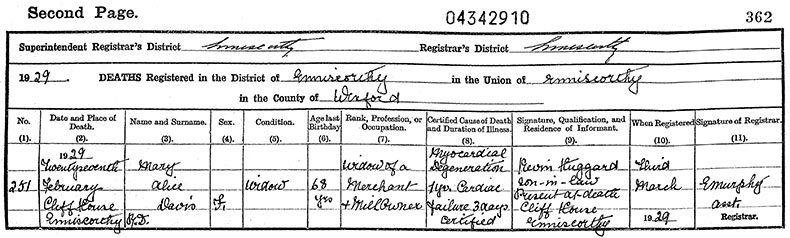 Second Page. 04342910 362
Superintendent Registrar's District Enniscorthy Registrar's District Enniscorthy
1929. DEATHS Registered in the District of Enniscorthy in the Union of Enniscorthy
in the County of Wexford
No. (1). Date and Place of Death. (2). Name and Surname. (3). Sex. (4). Condition. (5). Age last Birthday (6). Rank, Profession, or Occupation. (7). Certified Cause of Death and Duration of Illness. (8). Signature, Qualification, and Residence of Informant. (9). When Registered (10). Signature of Registrar. (11).
251 1929 Twentyseventh February Cliff House Enniscorthy R.D. Mary Alice Davis F. Widow 68 yrs Widow of a Merchant + Mill Owner Myocardial Degeneration 1 yr. Cardiac failure 3 days Certified Kevin Huggard son-in-law Present at death Cliff House Enniscorthy Third March 1929 E Murphy asst. Registrar.